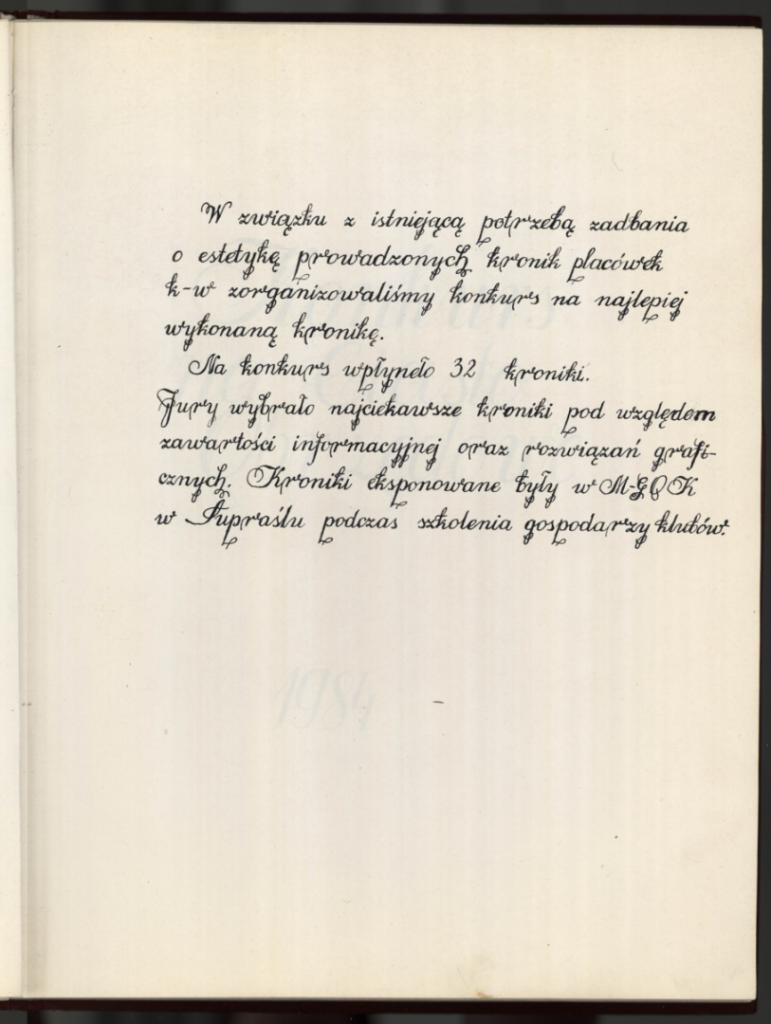 W związku z istniejącą potrzebą zadbania
o estetykę prowadzonych kronik placówek
k-w zorganizowaliśmy konkurs na najlepiej
wykonaną kronikę.
Na konkurs wpłyneło 32 kroniki.
Jury wybrało najciekawsze kroniki pod względem
zawartości informacyjnej oraz rozwiązań grafi-
cznych. Kroniki eksponowane były w M-GOK
w Supraślu podczas szkolenia gospodarzy klubów.
1984